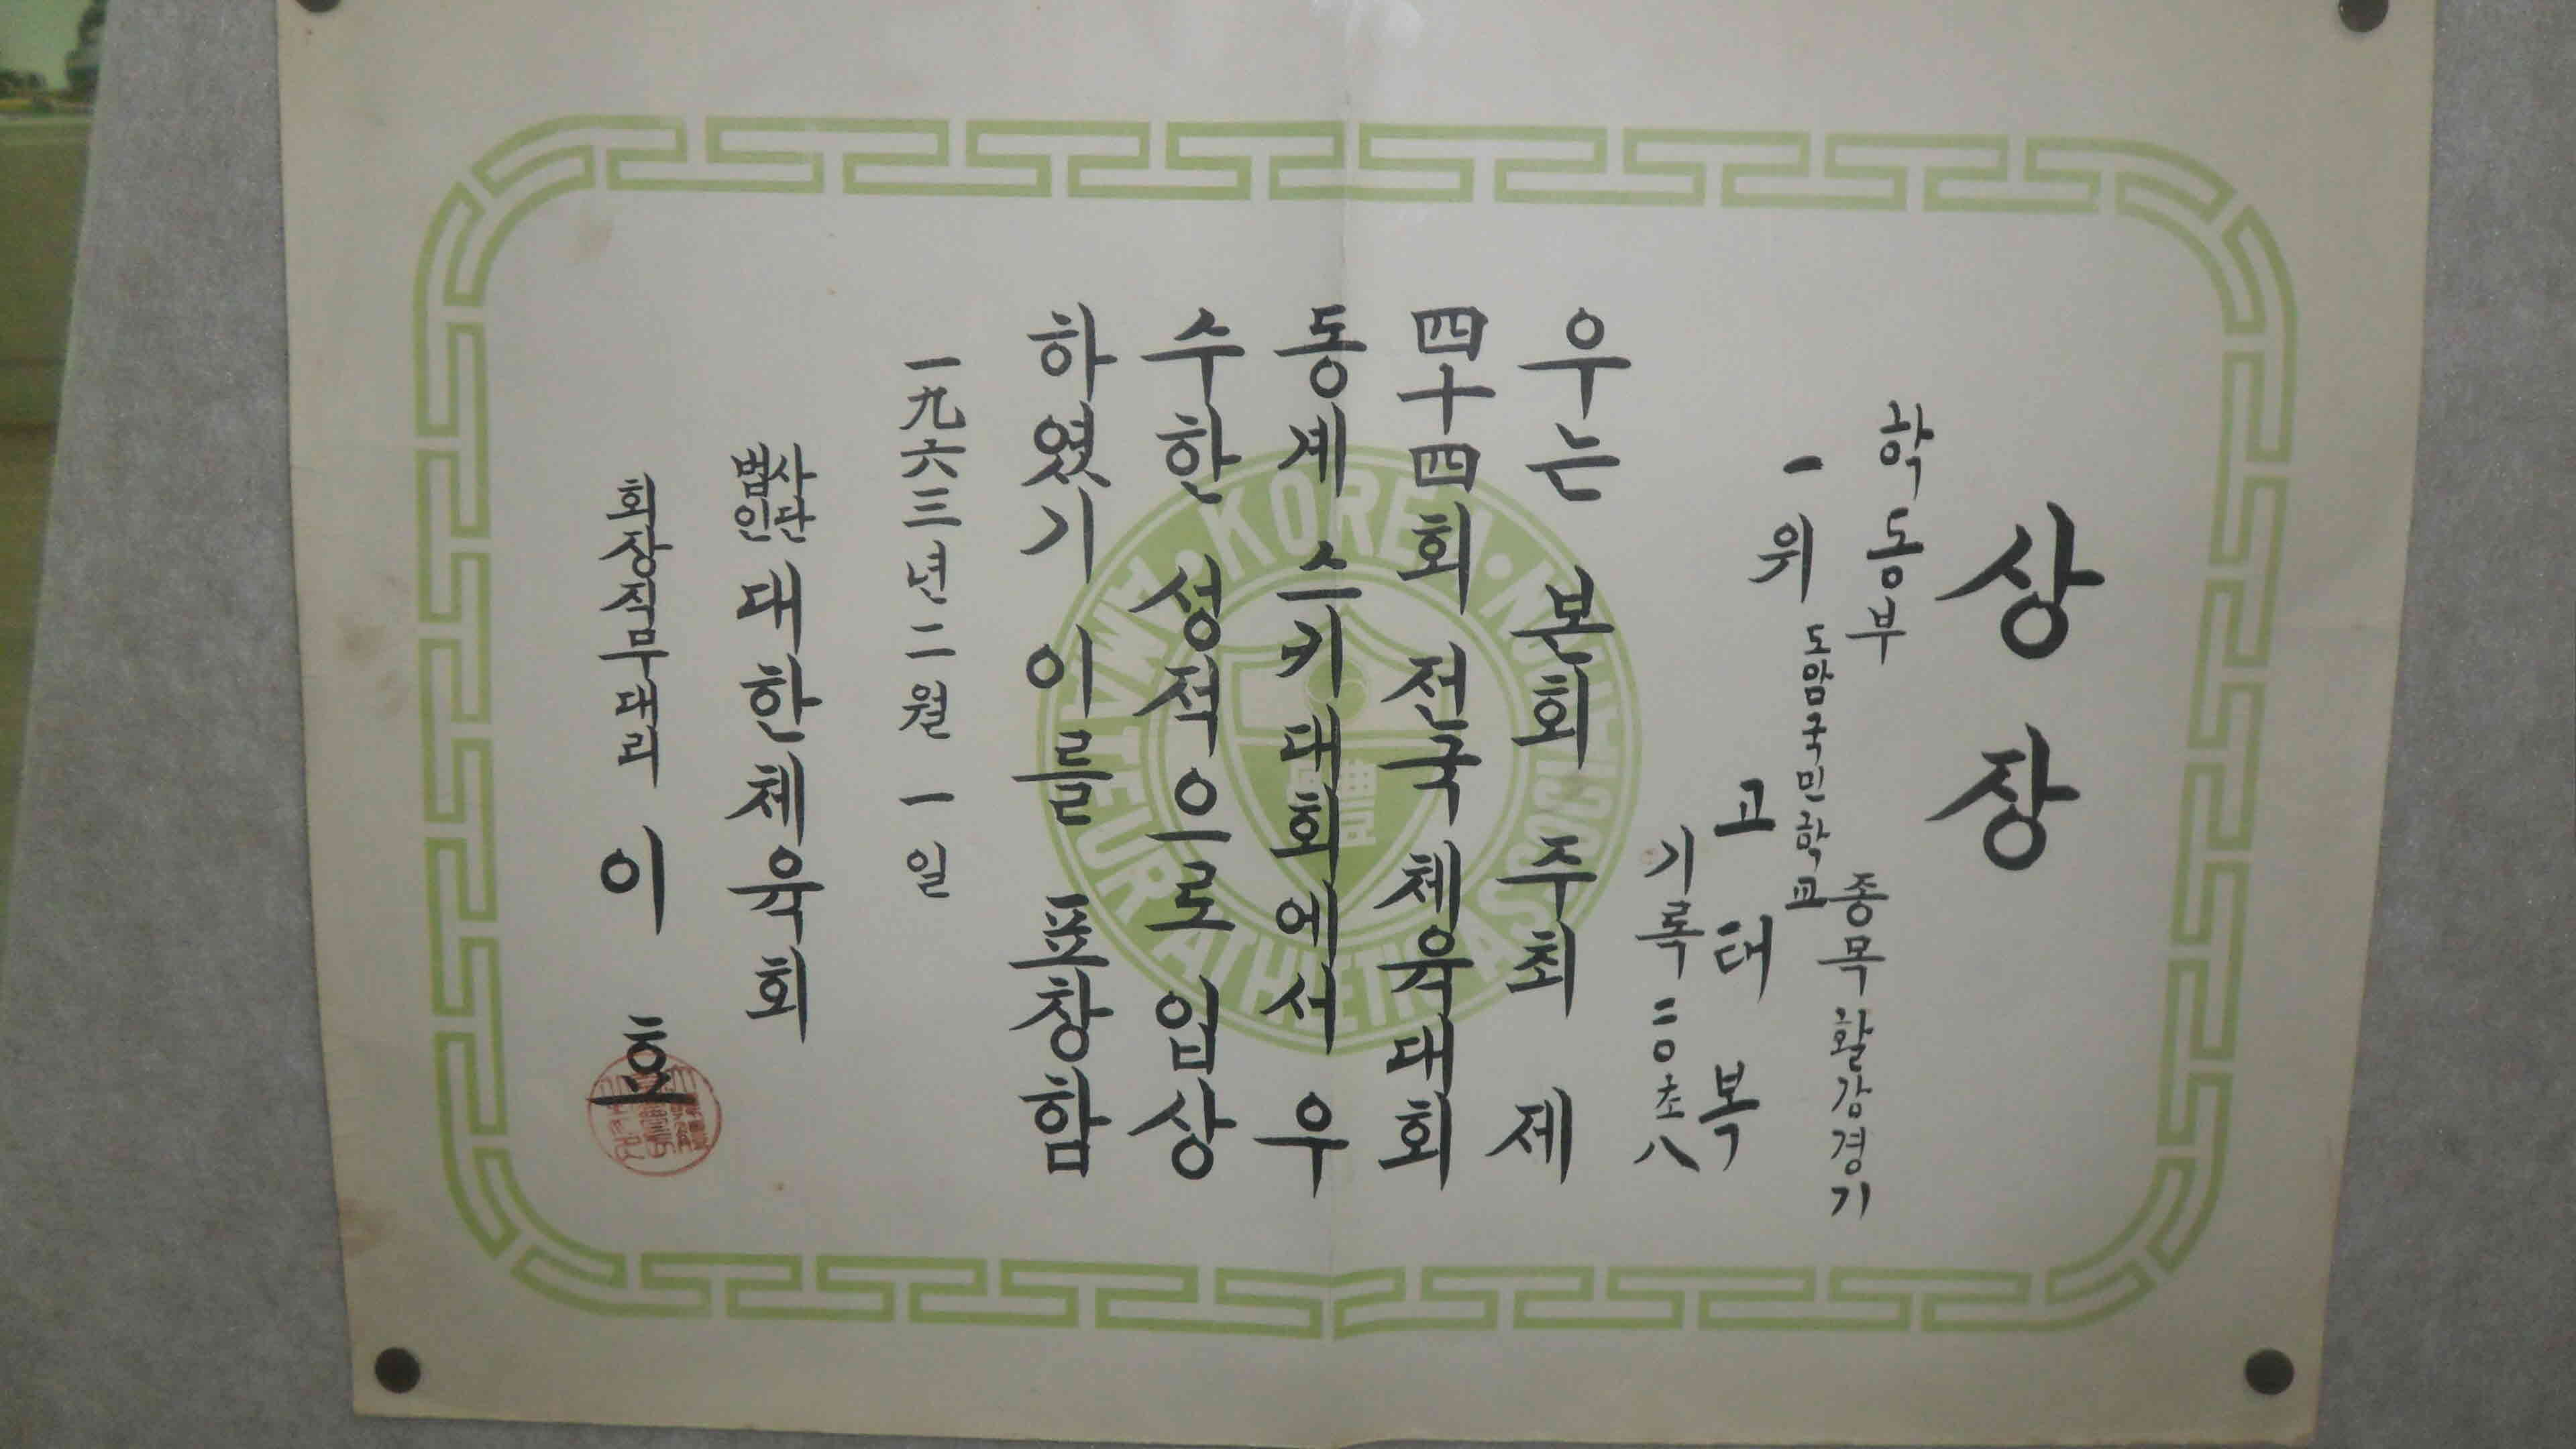 상장
학동부 종목 활강경기
一위 도암국민학교
고태복
기록 二〇초八
우는 본회 주최 제
四十四회 전국체육대회
동계 스키대회에서 우
수한 성적으로 입상
하였기 이를 표창함
一九六三년 二월 一일
사단법인 대한체육회
회장직무대리 이효
KOREA AMATEUR ATHLETIC ASSOCIATION